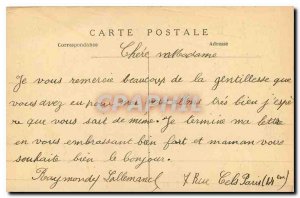 CARTE POSTALE
Correspondance
Adresse
Chére Madame
Je vous remercie beaucoup de la gentillesse que
vous avez eu pour très bien j'espè
re que vous sait de même. Je termine ma lettre
en vous embrassant bien fort et maman vous
souhaite bien le bonjour.
Raymonde Lallemand 7 Rue Cels Paris (14em)